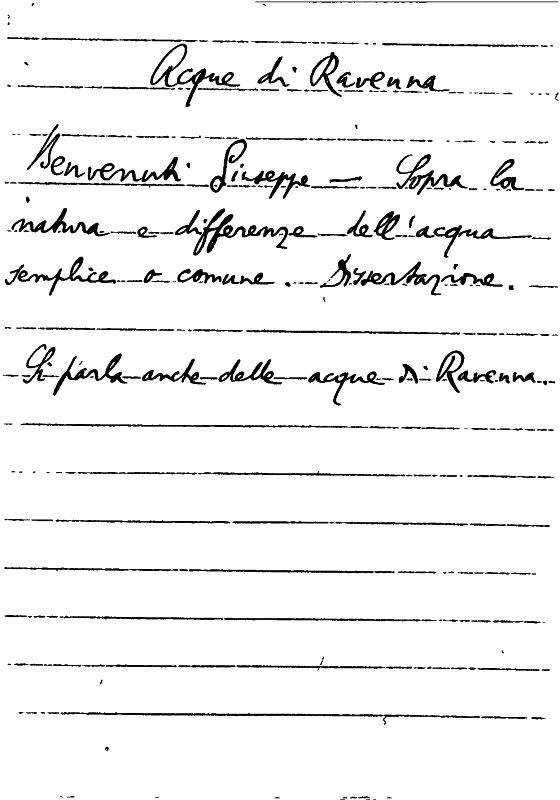 Acque di Ravenna
Benvenuti Giuseppe — Sopra la
natura e differenze dell'acqua
semplice o comune. Dissertazione.
Si parla anche delle acque di Ravenna.